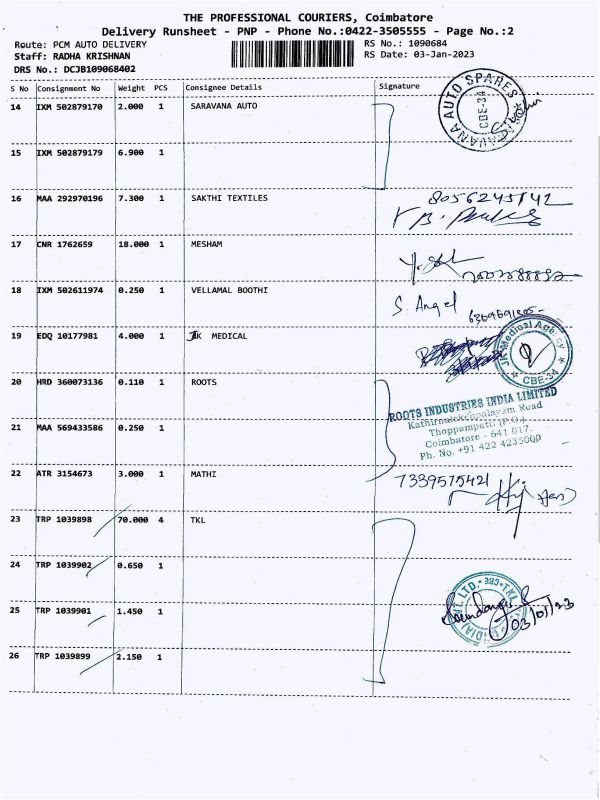 THE PROFESSIONAL COURIERS, Coimbatore
Delivery Runsheet - PNP - Phone No.:0422-3505555 - Page No.:2
Route: PCM AUTO DELIVERY RS No.: 1090684
Staff: RADHA KRISHNAN RS Date: 03-Jan-2023
DRS No.: DCJB109068402
S No Consignment No Weight PCS Consignee Details Signature
14 IXM 502879170 2.000 1 SARAVANA AUTO
SARAVANA AUTO SPARES
CBE-34
15 IXM 502879179 6.900 1
16 MAA 292970196 7.300 1 SAKTHI TEXTILES
17 CNR 1762659 18.000 1 MESHAM
18 IXM 502611974 0.250 1 VELLAMAL BOOTHI
S. Angel
19 EDQ 10177981 4.000 1 JK MEDICAL
JK Medical Agency
* CBE-34 *
20 HRD 360073136 0.110 1 ROOTS
ROOTS INDUSTRIES INDIA LIMITED
Thoppampatti (P.O.)
Coimbatore - 641 017.
Ph. No. +91 422 4235000
21 MAA 569433586 0.250 1
22 ATR 3154673 3.000 1 MATHI
7339575421
23 TRP 1039898 70.000 4 TKL
24 TRP 1039902 0.650 1
25 TRP 1039901 1.450 1
03/01/23
26 TRP 1039899 2.150 1